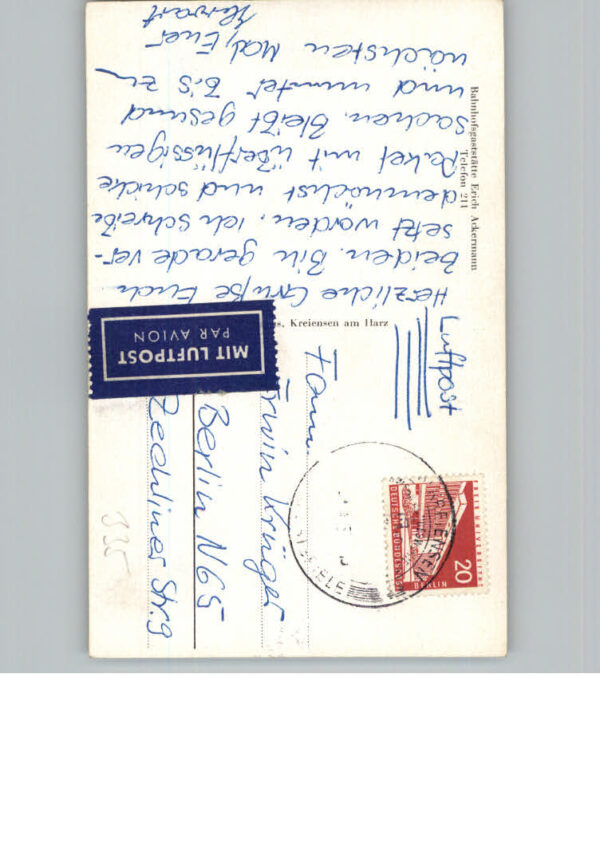 Herzliche Grüße Euch
Beiden. Bin gerade ver-
setzt worden. Ich schreibe
demnächst und schicke
Paket mit überflüssigen
Sachen. Bleibt gesund
und munter Bis zum
nächsten Mal, Euer
Bahnhofsgaststätte Erich Ackermann
Telefon 211
Kreiensen am Harz
MIT LUFTPOST
PAR AVION
Luftpost
Fam.
Erwin Krüger
Berlin N65
Zechliner Str. 9
DEUTSCHE BUNDESPOST
BERLIN
20
KREIENSEN